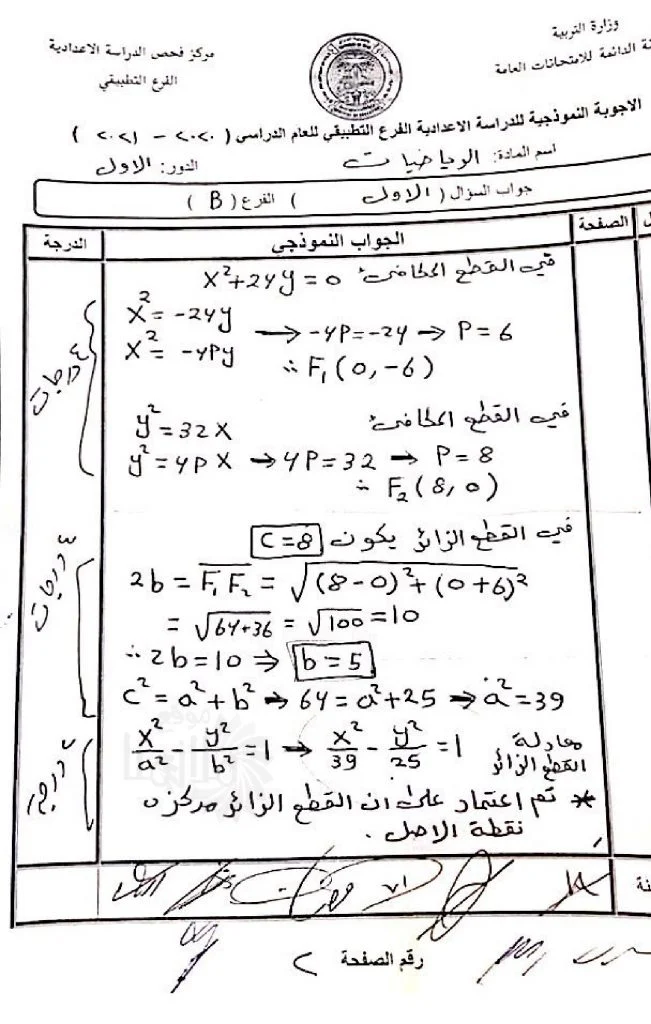 وزارة التربية
ة الدائمة للامتحانات العامة
مركز فحص الدراسة الاعدادية
الفرع التطبيقي
الاجوبة النموذجية للدراسة الاعدادية الفرع التطبيقي للعام الدراسي ( ٢٠٢٠ - ٢٠٢١ )
اسم المادة: الرياضيات
الدور: الاول
جواب السؤال ( الاول ) الفرع ( B )
ل
الصفحة
الجواب النموذجي
الدرجة
في القطع المكافئ x²+24y=0
x² = -24y
x² = -4Py → -4P=-24 → P=6
∴ F₁(0,-6)
٤ درجات
في القطع المكافئ
y²=32x
y²=4Px → 4P=32 → P=8
∴ F₂(8,0)
في القطع الزائد يكون C=8
2b = F₁F₂ = √(8-0)²+(0+6)²
= √64+36 = √100 = 10
∴ 2b=10 ⇒ b=5
٤ درجات
c²=a²+b² → 64=a²+25 → a²=39
معادلة القطع الزائد x²/a² - y²/b² = 1 → x²/39 - y²/25 = 1
* تم اعتماد على ان القطع الزائد مركزه
نقطة الاصل.
نة
رقم الصفحة ٢